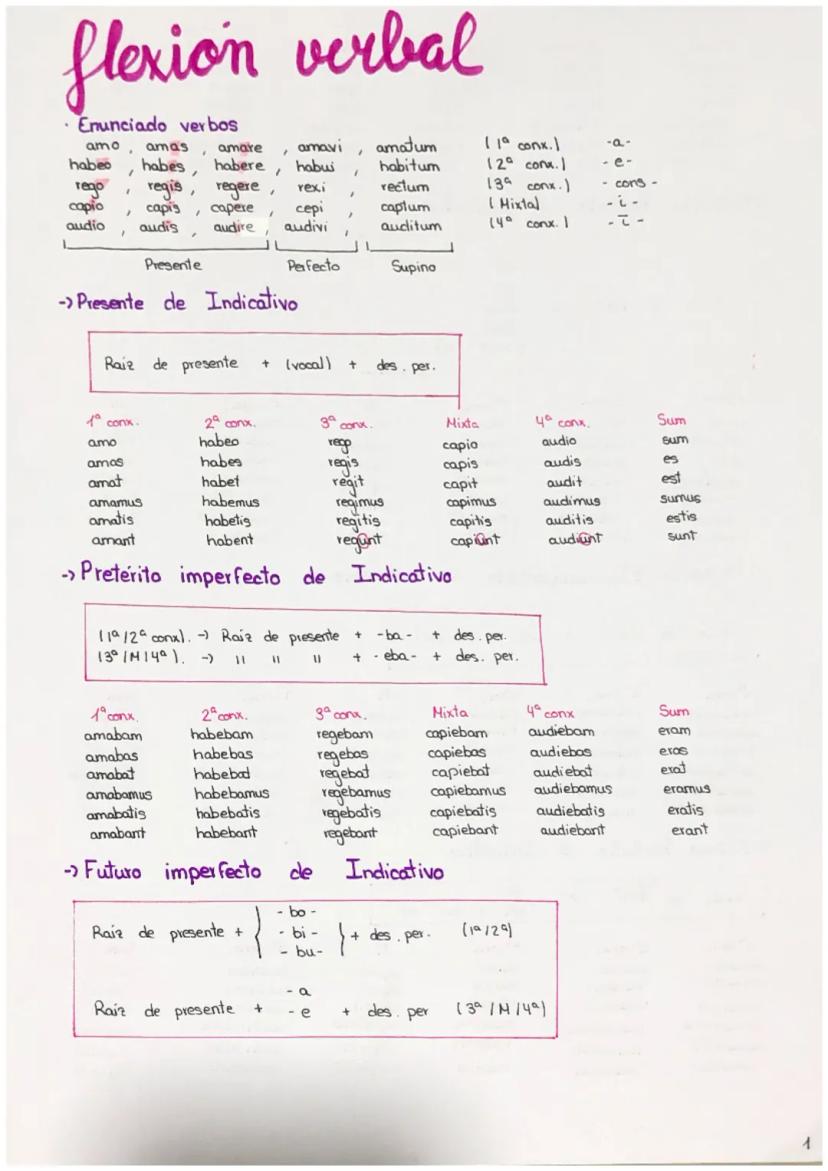 flexión verbal
· Enunciado verbos
amo , amas , amare , amavi , amatum (1ª conx.) -a-
habeo , habes , habere , habui , habitum (2ª conx.) -e-
rego , regis , regere , rexi , rectum (3ª conx.) - cons -
capio , capis , capere , cepi , captum (Mixta) - ĭ -
audio , audis , audire , audivi , auditum (4ª conx.) - ī -
Presente Perfecto Supino
-> Presente de Indicativo
Raiz de presente + (vocal) + des. per.
1ª conx. 2ª conx. 3ª conx. Mixta 4ª conx. Sum
amo habeo rego capio audio sum
amas habes regis capis audis es
amat habet regit capit audit est
amamus habemus regimus capimus audimus sumus
amatis habetis regitis capitis auditis estis
amant habent regunt capiunt audiunt sunt
-> Pretérito imperfecto de Indicativo
(1ª/2ª conx). -> Raiz de presente + -ba- + des. per.
(3ª/M/4ª). -> " " " + -eba- + des. per.
1ª conx. 2ª conx. 3ª conx. Mixta 4ª conx Sum
amabam habebam regebam capiebam audiebam eram
amabas habebas regebas capiebas audiebas eras
amabat habebat regebat capiebat audiebat erat
amabamus habebamus regebamus capiebamus audiebamus eramus
amabatis habebatis regebatis capiebatis audiebatis eratis
amabant habebant regebant capiebant audiebant erant
-> Futuro imperfecto de Indicativo
- bo -
Raiz de presente + { - bi - } + des. per. (1ª/2ª)
- bu-
- a
Raiz de presente + - e + des. per (3ª/M/4ª)
1